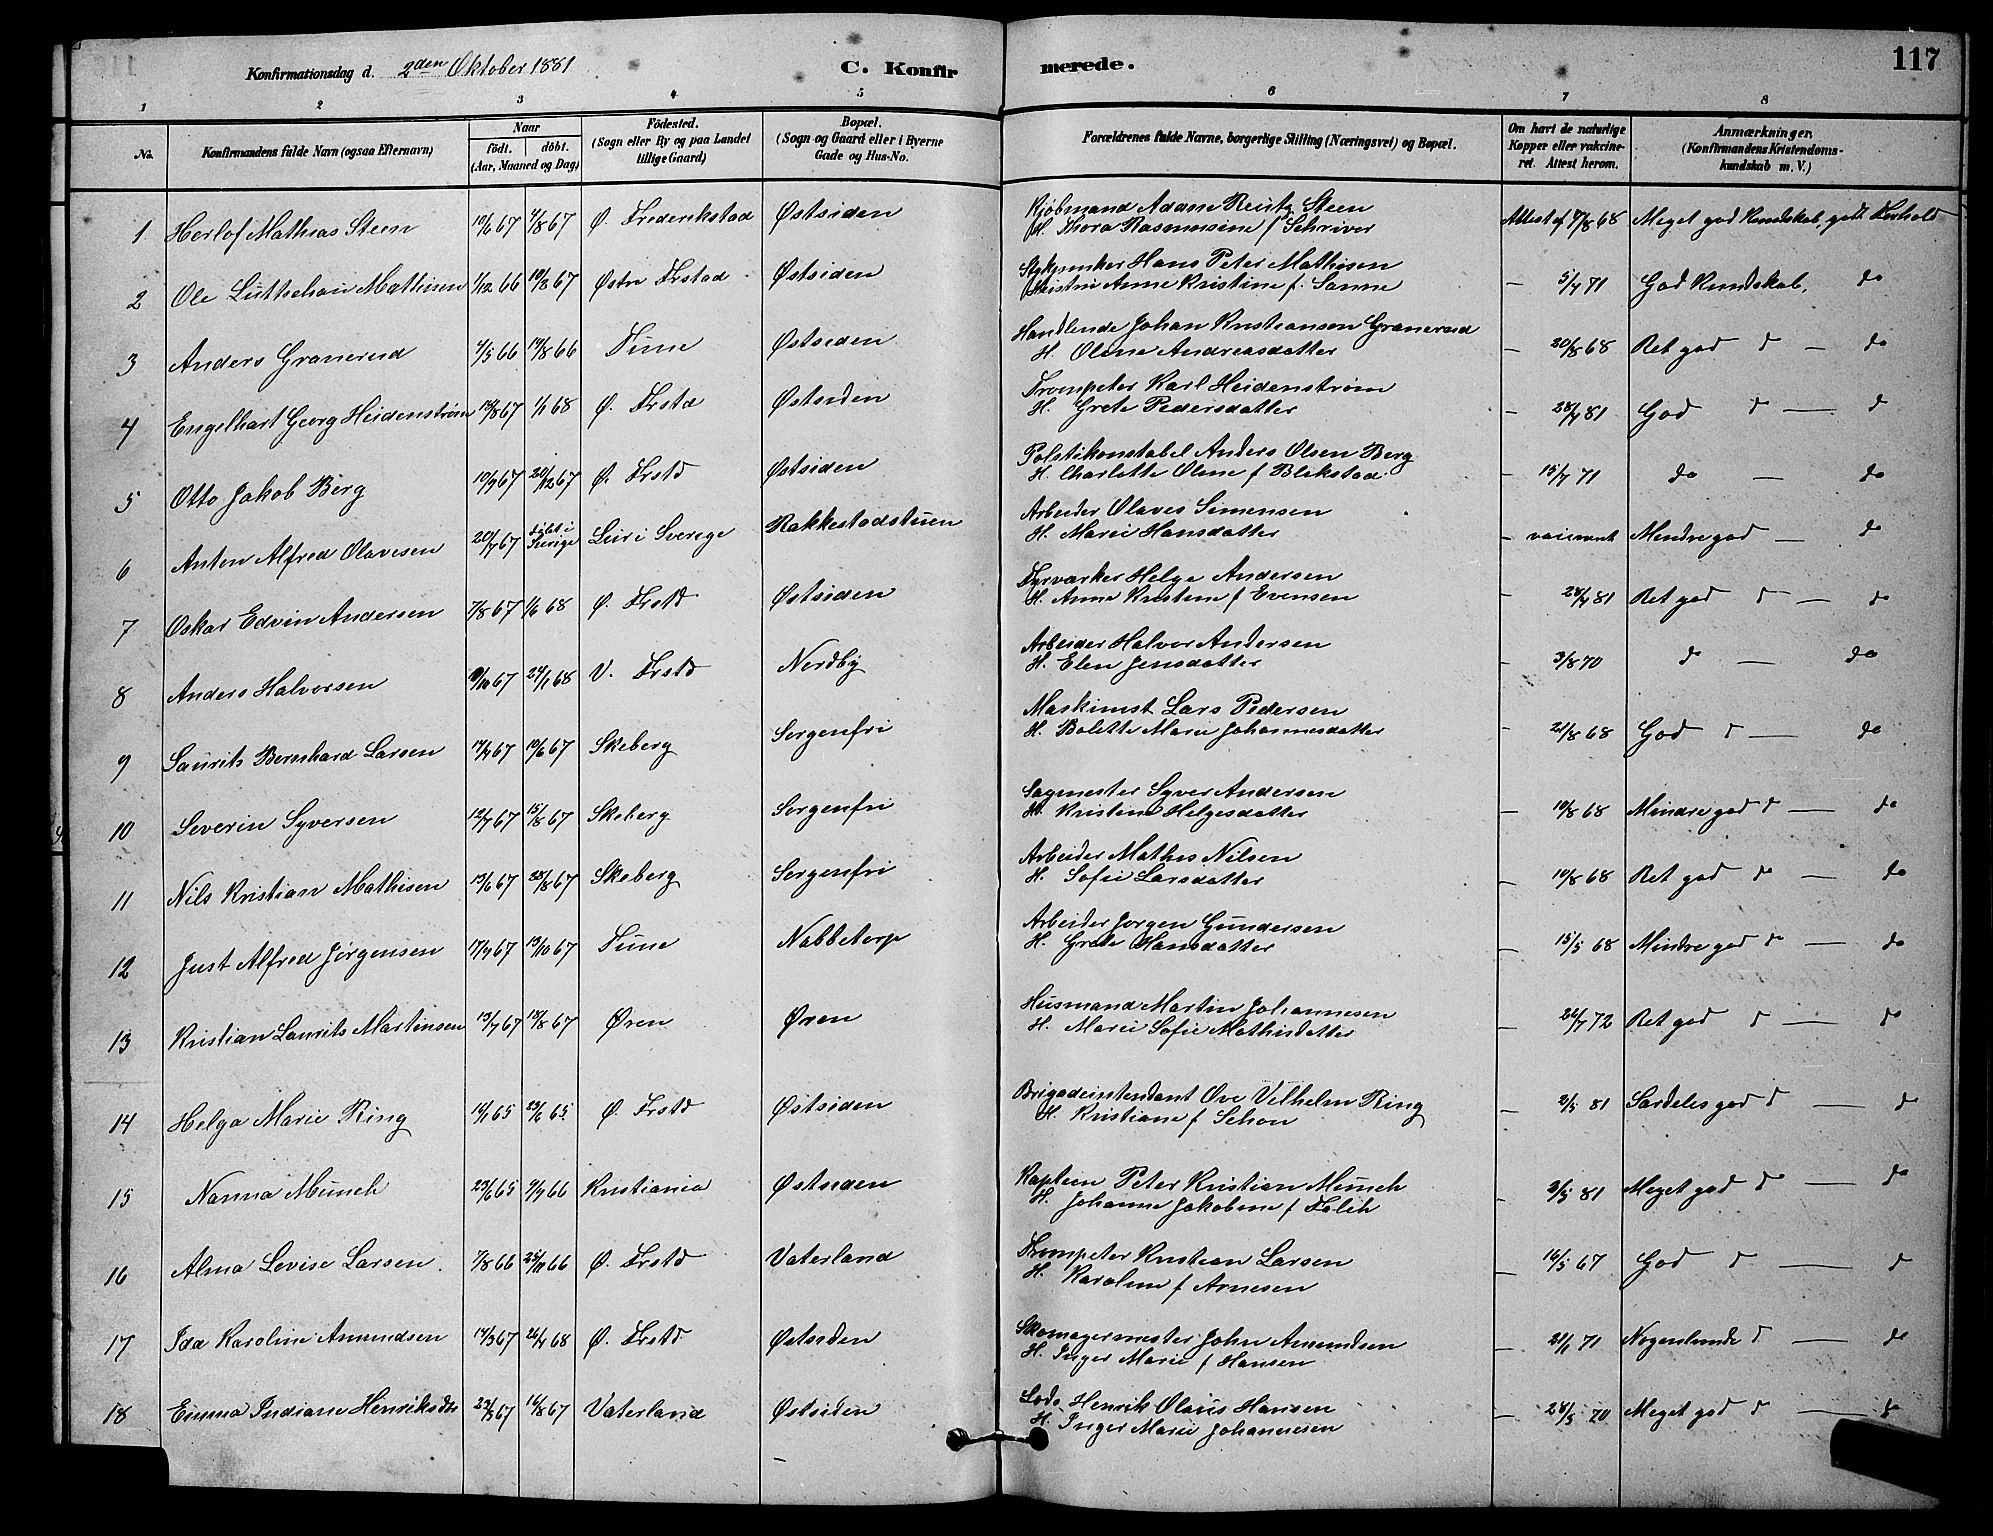 Konfirmationsdag d. 2den Oktober 1881
C. Konfirmerede.
117
1 2 3 4 5 6 7 8
No.
Konfirmandens fulde Navn (ogsaa Efternavn)
Naar
födt. döbt.
(Aar, Maaned og Dag)
Födested.
(Sogn eller By og paa Landet
tillige Gaard)
Bopæl.
(Sogn og Gaard eller i Byerne
Gade og Hus-No.
Forældrenes fulde Navne, borgerlige Stilling (Næringsvei) og Bopæl.
Om havt de naturlige
Kopper eller vakcine-
ret. Attest herom.
Anmærkninger,
(Konfirmandens Kristendoms-
kundskab m. V.)
1 Herlof Mathias Steen 10/6 67 4/8 67 Ø. Frederikstad Østsiden Kjøbmand Adam Reutz Steen Attest af 7/8 68 Meget god Kundskab, godt Forhold
H. Thora Rasmussine f Schriver
2 Ole Luttichau Mathisen 1/12 66 10/3 67 Østre Frstad Østsiden Hans Peter Mathisen — 5/7 71 God Kundskab, do
Anne Kristine f. Sanne
3 Anders Granerud 4/5 66 19/8 66 Tune Østsiden Handlende Johan Kristiansen Granerud — 20/8 68 Ret god d — do
H. Oline Andreasdatter
4 Engelhart Georg Heidenstrøm 13/8 67 1/1 68 Ø. Frstd Østsiden Trompeter Karl Heidenstrøm — 28/4 81 God d — d
H. Grete Pedersdatter
5 Otto Jakob Berg 10/9 67 20/12 67 Ø. Frstd Østsiden Politikonstabel Anders Olsen Berg — 15/7 71 do — do
H. Charlotte Oline f Blekstad
6 Anton Alfred Olavesen 20/7 67 döbt i Sverige Lur i Sverige Rakkestadstuen Arbeider Olaves Simensen — vaccineret Mindre god — do
H. Marie Hansdatter
7 Oskar Edvin Andersen 7/8 67 1/6 68 Ø. Frstd Østsiden Fyrværker Helge Andersen — 28/4 81 Ret god d — do
H. Anne Kristine f Evensen
8 Anders Halvorsen 9/10 67 24/1 68 V. Frstd Nordby Arbeider Halvor Andersen — 3/8 70 d — do
H. Elen Jensdatter
9 Laurits Bernhard Larsen 14/4 67 10/6 67 Skeberg Sorgenfri Maskinist Lars Pedersen — 21/8 68 God d — do
H. Bolette Marie Johannesdatter
10 Severin Syversen 12/7 67 15/8 67 Skeberg Sorgenfri Sagmester Syver Andersen — 10/8 68 Mindre god d — do
H. Kristine Helgesdatter
11 Nils Kristian Mathisen 13/6 67 28/8 67 Skeberg Sorgenfri Arbeider Mathis Nilsen — 10/8 68 Ret god d — do
H. Sofie Larsdatter
12 Just Alfred Jørgensen 17/9 67 13/10 67 Tune Nabbetorp Arbeider Jørgen Gundersen — 15/5 68 Mindre god d — do
H. Grete Hansdatter
13 Kristian Laurits Martinsen 13/7 67 18/8 67 Øren Øren Husmand Martin Johannesen — 26/7 72 Ret god d — do
H. Marie Sofie Mathisdatter
14 Helga Marie Ring 14/1 65 23/6 65 Ø. Frstd Østsiden Brigadeintendant Ove Vilhelm Ring — 2/5 81 Særdeles god d — d
H. Kristiane f Schou
15 Nanna Munch 23/6 65 9/7 66 Kristiania Østsiden Kaptein Peter Kristian Munch — 3/5 81 Meget god d — do
H. Johanne Jakobine f
16 Alma Lovise Larsen. 7/8 66 25/11 66 Ø. Frstd Vaterland Trompeter Kristian Larsen — 16/5 67 God d — d
H. Karoline f Arnesen
17 Ida Karoline Amundsen 14/3 67 26/4 68 Ø. Frstd Østsiden Skomagermester Johan Amundsen — 21/1 71 Nogenlunde d — do
H. Inger Marie f Hansen
18 Emma Indiane Henriksdtr 29/3 67 16/8 67 Vaterland Østsiden Lods Henrik Olaus Hansen — 28/5 70 Meget god d — do
H. Inger Marie Johannesen